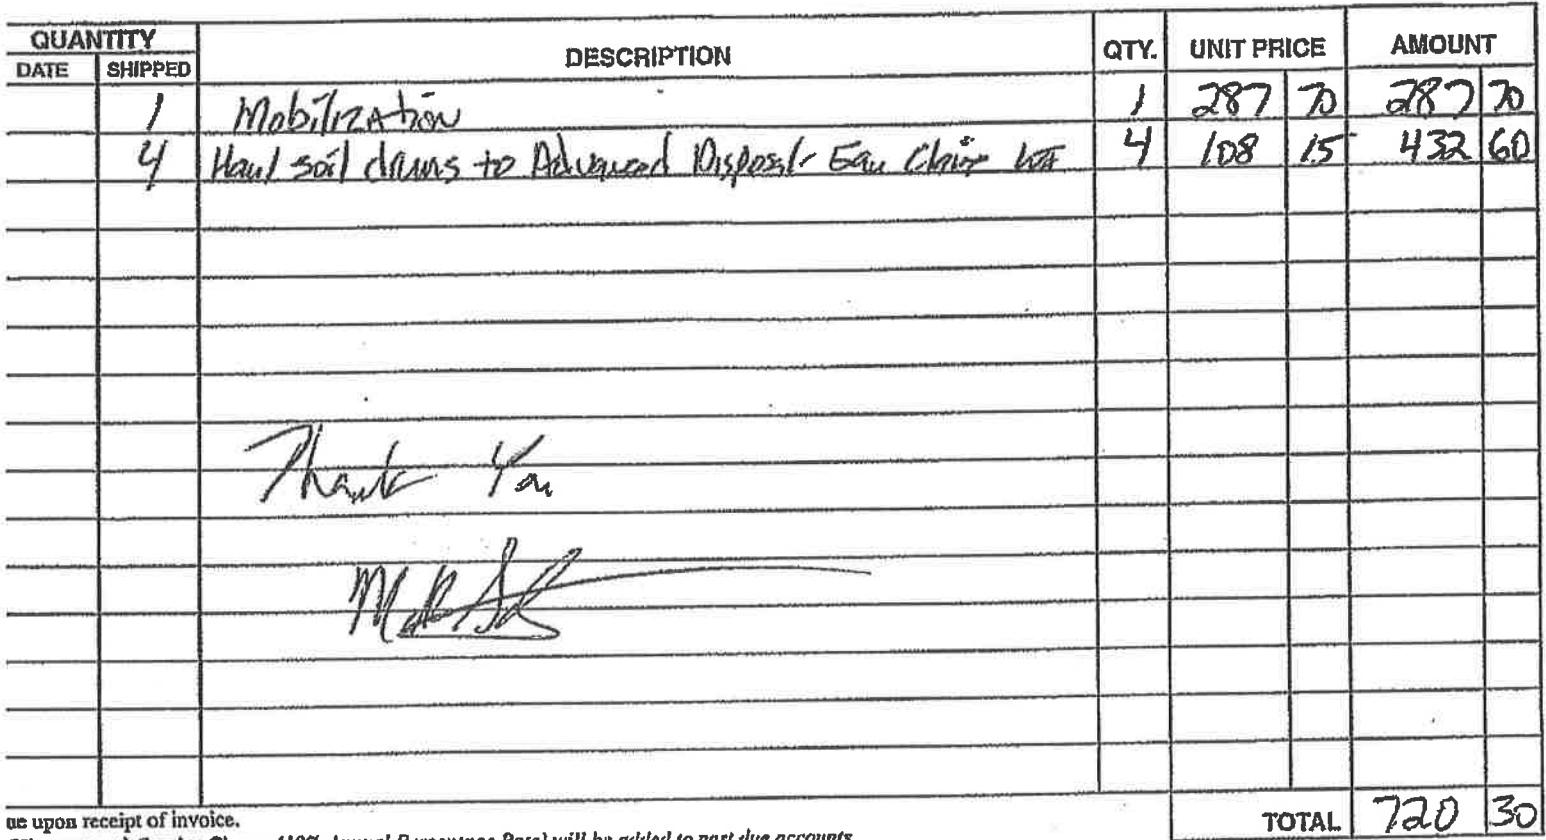 QUANTITY DESCRIPTION QTY. UNIT PRICE AMOUNT
DATE SHIPPED
1 Mobilization 1 287 70 287 70
4 Haul soil drums to Advanced Disposal - Eau Claire 4 108 15 432 60
Thank You
ue upon receipt of invoice.
Annual Percentage Rate) will be added to past due accounts
TOTAL 720 30